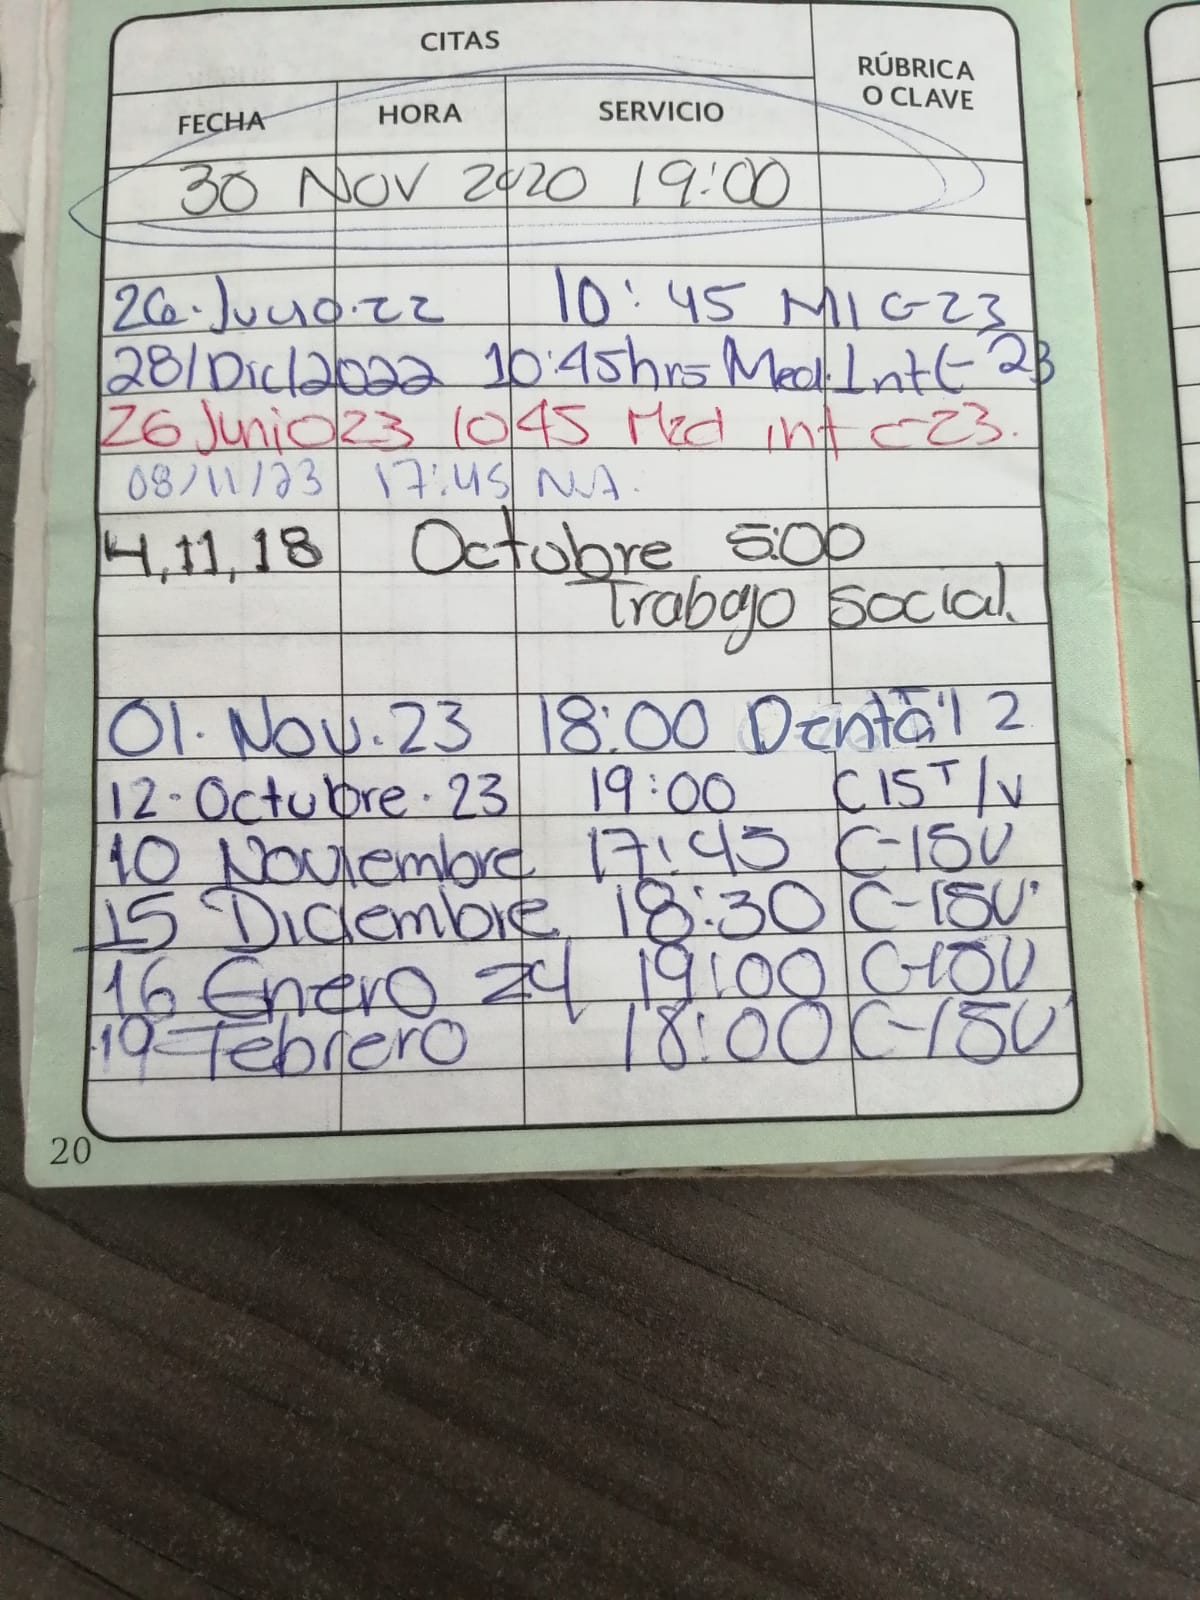 CITAS
FECHA HORA SERVICIO RÚBRICA O CLAVE
30 NOV 2020 19:00
26. Julio. 22 10:45 MI C-23
28/Dic/2022 10:45hrs Med. Int C-23
26 Junio 23 1045 Med int c-23.
08/11/23 17:45 N.A.
4,11,18 Octubre 5:00
Trabajo social.
01. Nov. 23 18:00 Dental 2
12. Octubre. 23 19:00 C 15 T/V
10 Noviembre 17:45 C-15V
15 Diciembre 18:30 C-15V
16 Enero 24 19:00 C-15V
19 Febrero 18:00 C-15V
20